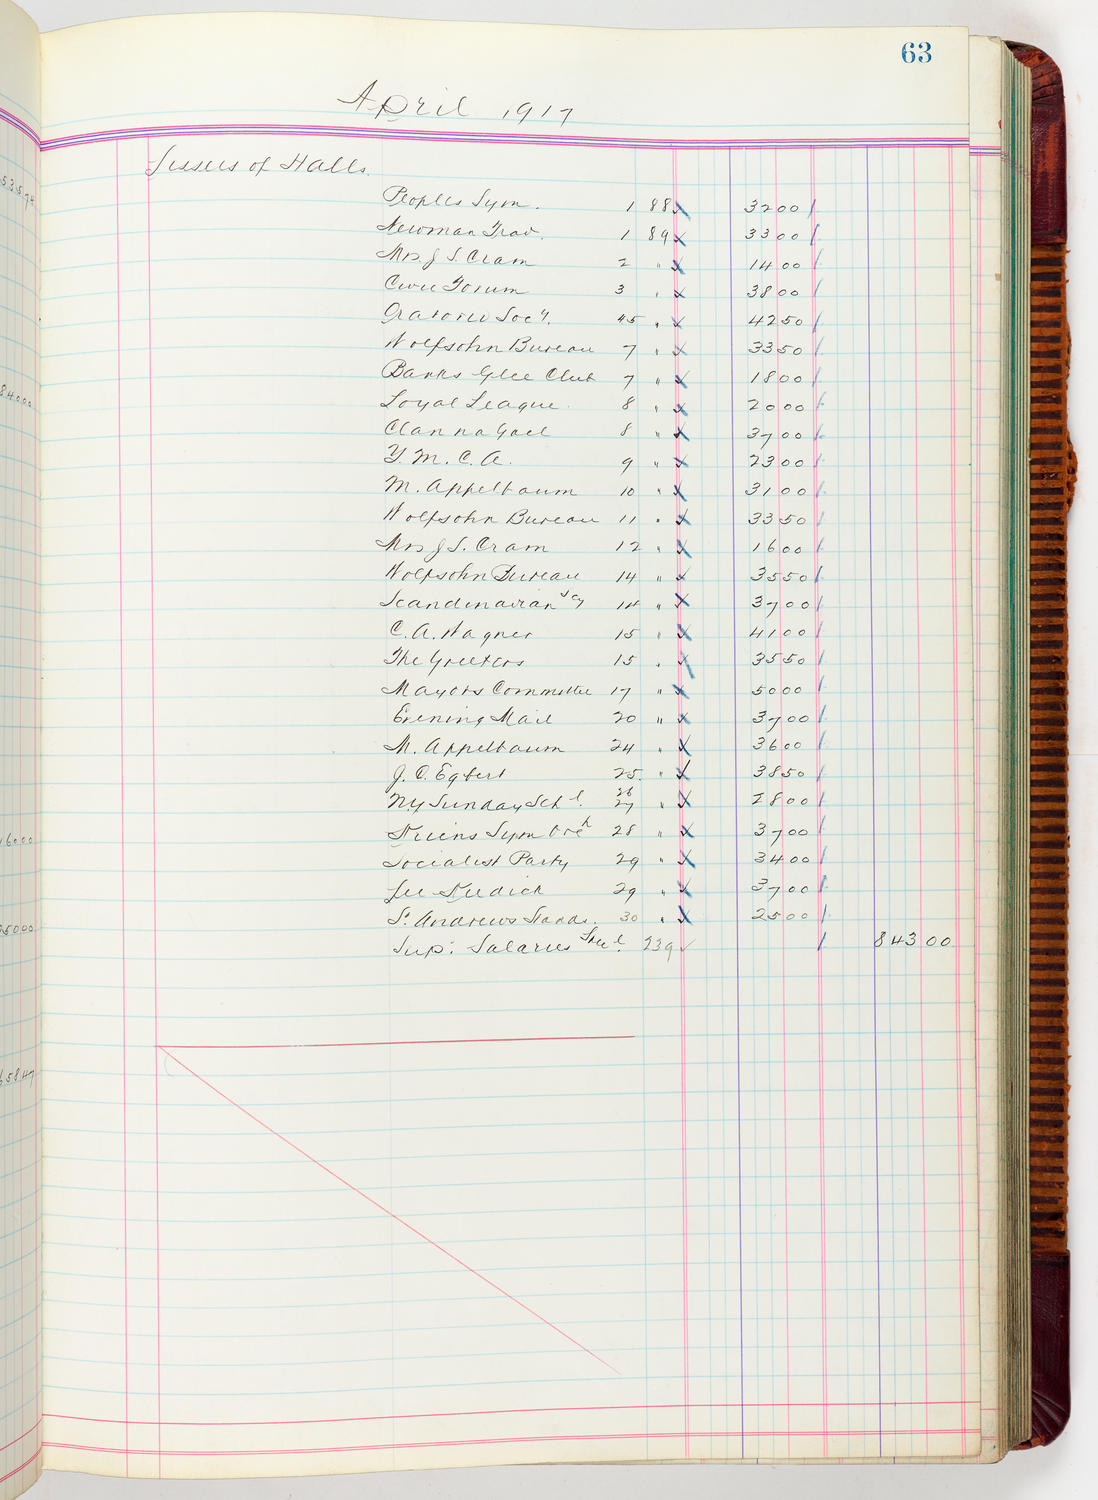 63
April 1917
Lessees of Halls.
Peoples Sym. 1 88 3200
Newman Trav. 1 89 3300
Mrs J S Cram 2 " 1400
Civic Forum 3 " 3800
Oratorio Socy. 45 " 4250
Wolfsohn Bureau 7 " 3350
Banks Glee Club 7 " 1800
Loyal League. 8 " 2000
Clan na Gael 8 " 3700
Y. M. C. A. 9 " 2300
M. Appelbaum 10 " 3100
Wolfsohn Bureau 11 " 3350
Mrs J S. Cram 12 " 1600
Wolfsohn Bureau 14 " 3550
Scandinavian Scy 14 " 3700
C. A. Wagner 15 " 4100
The Greeters 15 " 3550
Mayors Committee 17 " 5000
Evening Mail 20 " 3700
M. Appelbaum 24 " 3600
J. C. Egbert 25. " 3850
N.Y. Sunday Schl. 26 27 " 2800
Sym Orch 28 " 3700
Socialist Party 29 " 3400
Lee 29 " 3700
St. Andrews 30 " 2500
Sup: Salaries 239 84300
53594
84000
16000
25000
65847